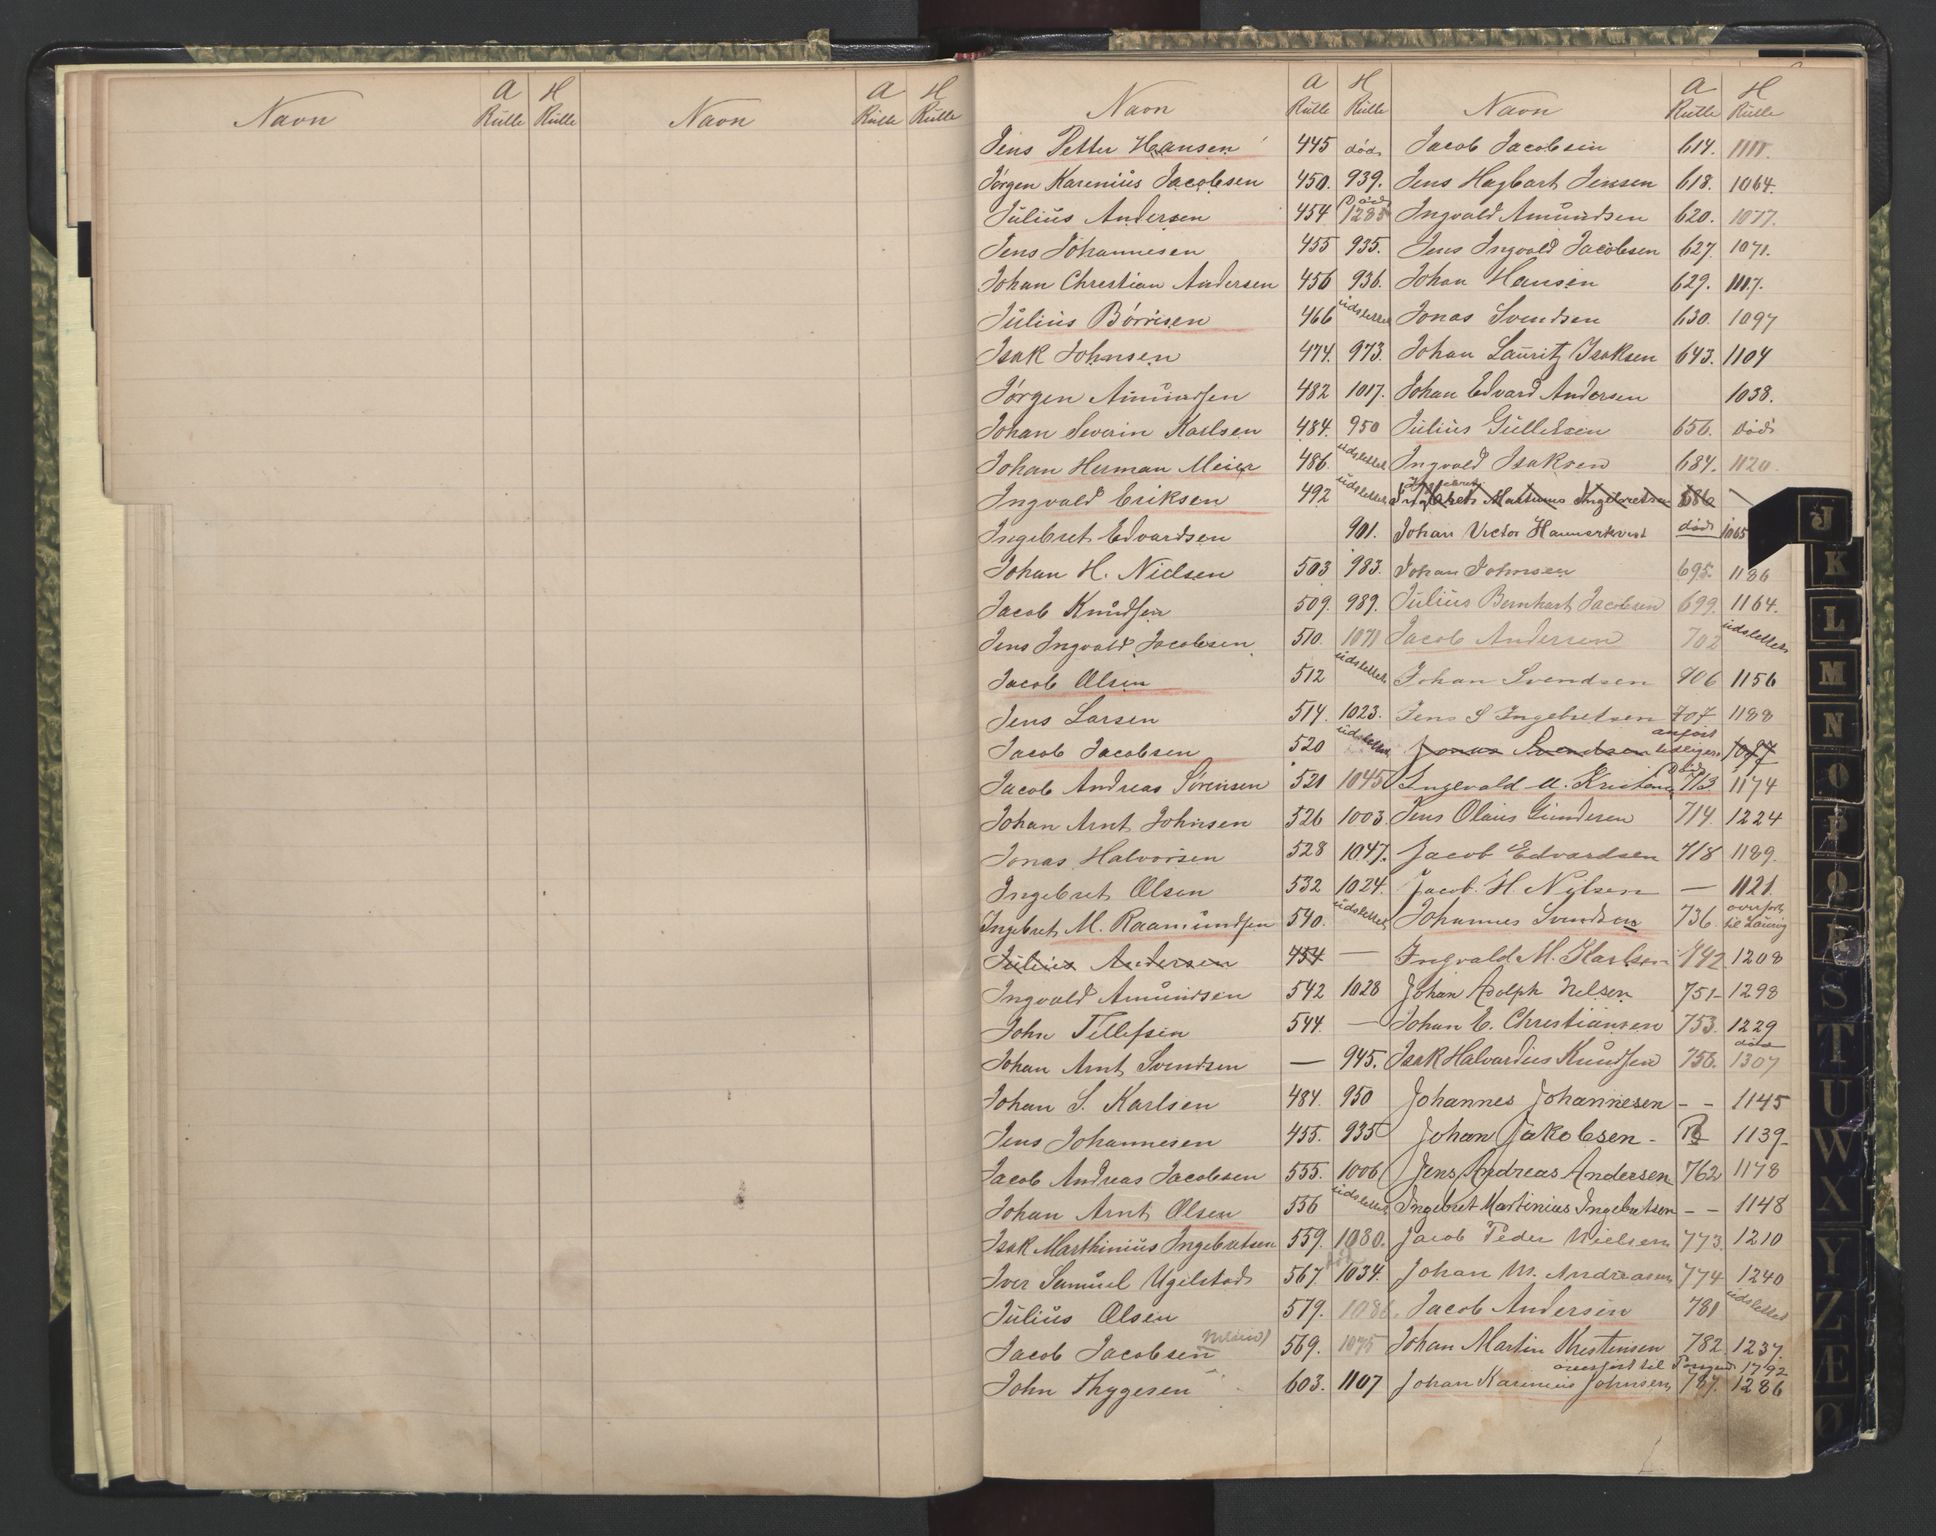 Navn A Rulle H Rulle Navn A Rulle H Rulle
Navn A Rulle H Rulle Navn A Rulle H Rulle
Jens Petter Hansen 445 død Jacob Jacobsen 614. 1111.
Jørgen Karenius Jacobsen 450. 939. Jens Hagbart Jensen 618. 1064.
Julius Andersen 454 Død 1285 Ingvald Amundsen 620. 1077.
Jens Johannesen 455 935. Jens Ingvald Jacobsen 627. 1071.
Johan Christian Andersen 456 936. Johan Hansen 629. 1117.
Julius Børrisen 466 udslettet Jonas Svendsen 630. 1097
Isak Johnsen 474. 973. Johan Lauritz Isaksen 643. 1104
Jørgen Amundsen 482 1017. Johan Edvard Andersen 1038.
Johan Severin Karlsen 484. 950 Julius Gullelsen 656. død
Johan Herman Meier 486. udslettet Ingvald Isaksen 684. 1120.
Ingvald Eriksen 492 udslettet Ingebret Martinius Ingebretsen 686 —
Ingebret Edvardsen 901. Johan Victor Hammerkvist død 1065
Johan H. Nielsen 503 983. Johan Johnsen 695. 1136
Jacob Knudsen 509. 989. Julius Bernhart Jacobsen 699. 1164.
Jens Ingvald Jacobsen 510. 1071 Jacob Andersen 702 udslettet
Jacob Olsen 512 udslettet Johan Svendsen 706 1156
Jens Larsen 514. 1023. Jens S Ingebretsen 707 1188
Jacob Jacobsen 520 udslettet Jonas Svendsen anført tidligere 1097
Jacob Andreas Sørensen 521 1045 Ingevald A. Kristens Død 713 1174
Johan Arnt Johnsen 526 1003. Jens Olaus Gundersen 714. 1224
Jonas Halvorsen 528 1047. Jacob Edvardsen 718 1189.
Ingebret Olsen 532 1024. Jacob. H. Nilsen — 1121.
Ingebret M. Raamundsen 540. udslettet Johannes Svendsen 736. overført til Laurvig
Julius Andersen 454 — Ingvald M. Karlsen 742. 1208
Ingvald Amundsen 542 1028 Johan Adolph Nelsen 751- 1298
John Tellefsen 544. — Johan E. Christiansen 753. 1229
Johan Arnt Svendsen — 945. Isak Halvardius Knudsen 756. død 1307
Johan S. Karlsen 484. 950 Johannes Johannesen - - 1145
Jens Johannesen 455. 935 Johan Jakobsen - 1139-
Jacob Andreas Jacobsen 555. 1006 Jens Andreas Andersen 762 1178
Johan Arnt Olsen 556 udslettet Ingebret Martinius Ingebretsen - - 1148
Isak Marthinius Ingebretsen 559. 1080. Jacob Peder Nielsen 773. 1210
Iver Samuel Ugelstad 567. 1034. Johan M. Andreasen 774 1240
Julius Olsen 579. 1086. Jacob Andersen 781 udslettet
Jacob Jacobsen 569. 1075 Johan Martin Kristensen 782. 1237.
overført til 1792
John Thygesen 603. 1107 Johan Karenius Johnsen 787. 1286
J
K
L
M
N
O
P
Q
R
S
T
U
W
X
Y
Z
Æ
Ø